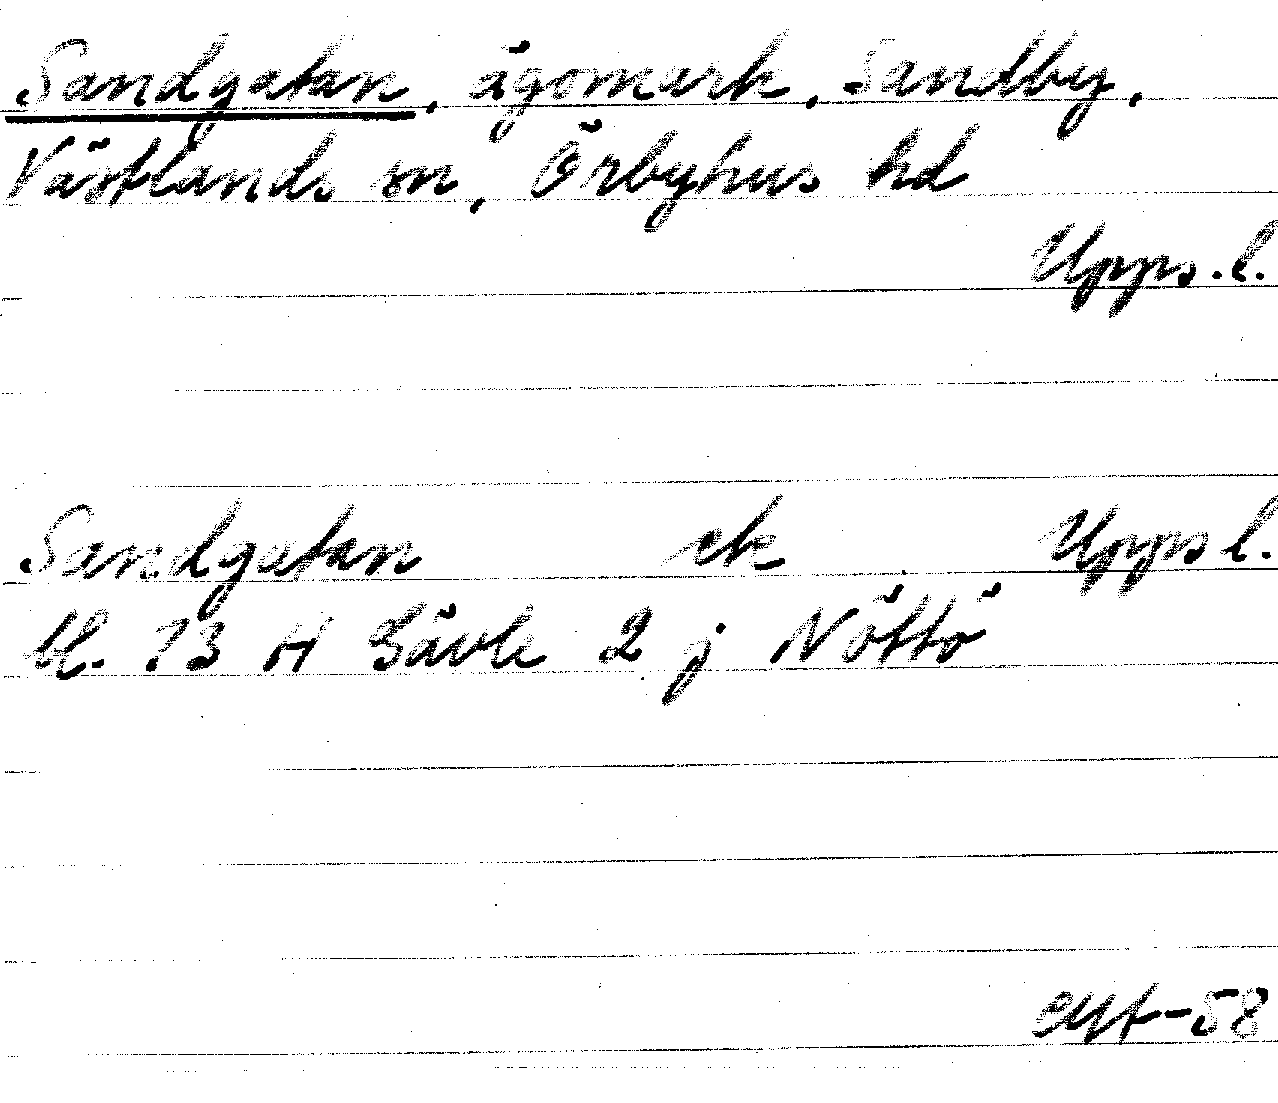 Sandgatan, ägomark, Sandby,
Västlands sn, Örbyhus hd
Upps. l.
Sandgatan ek Upps l.
bl. 13 H Gävle 2 j Nöttö